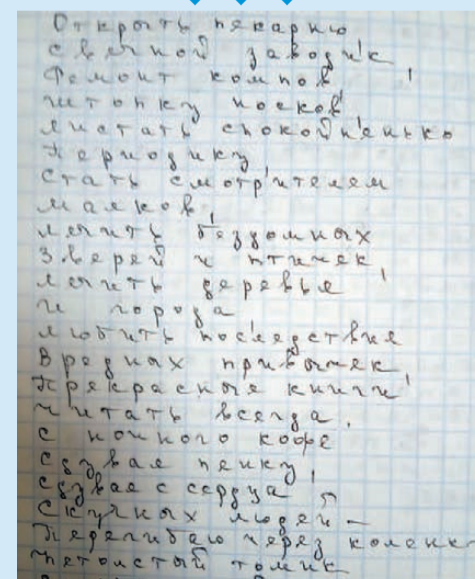 Открыть пекарню,
свечной заводик,
Ремонт компов,
штопку носков,
листать спокойненько
Периодику,
стать смотрителем
маяков.
лечить бездомных
зверей и птичек,
лечить деревья
и города
любить последствия
вредных привычек,
Прекрасные книги
читать всегда.
с ночного кофе
сдувая пенку,
сдувая с сердца
скучных людей —
Перегибаю через коленк
петоистый томик